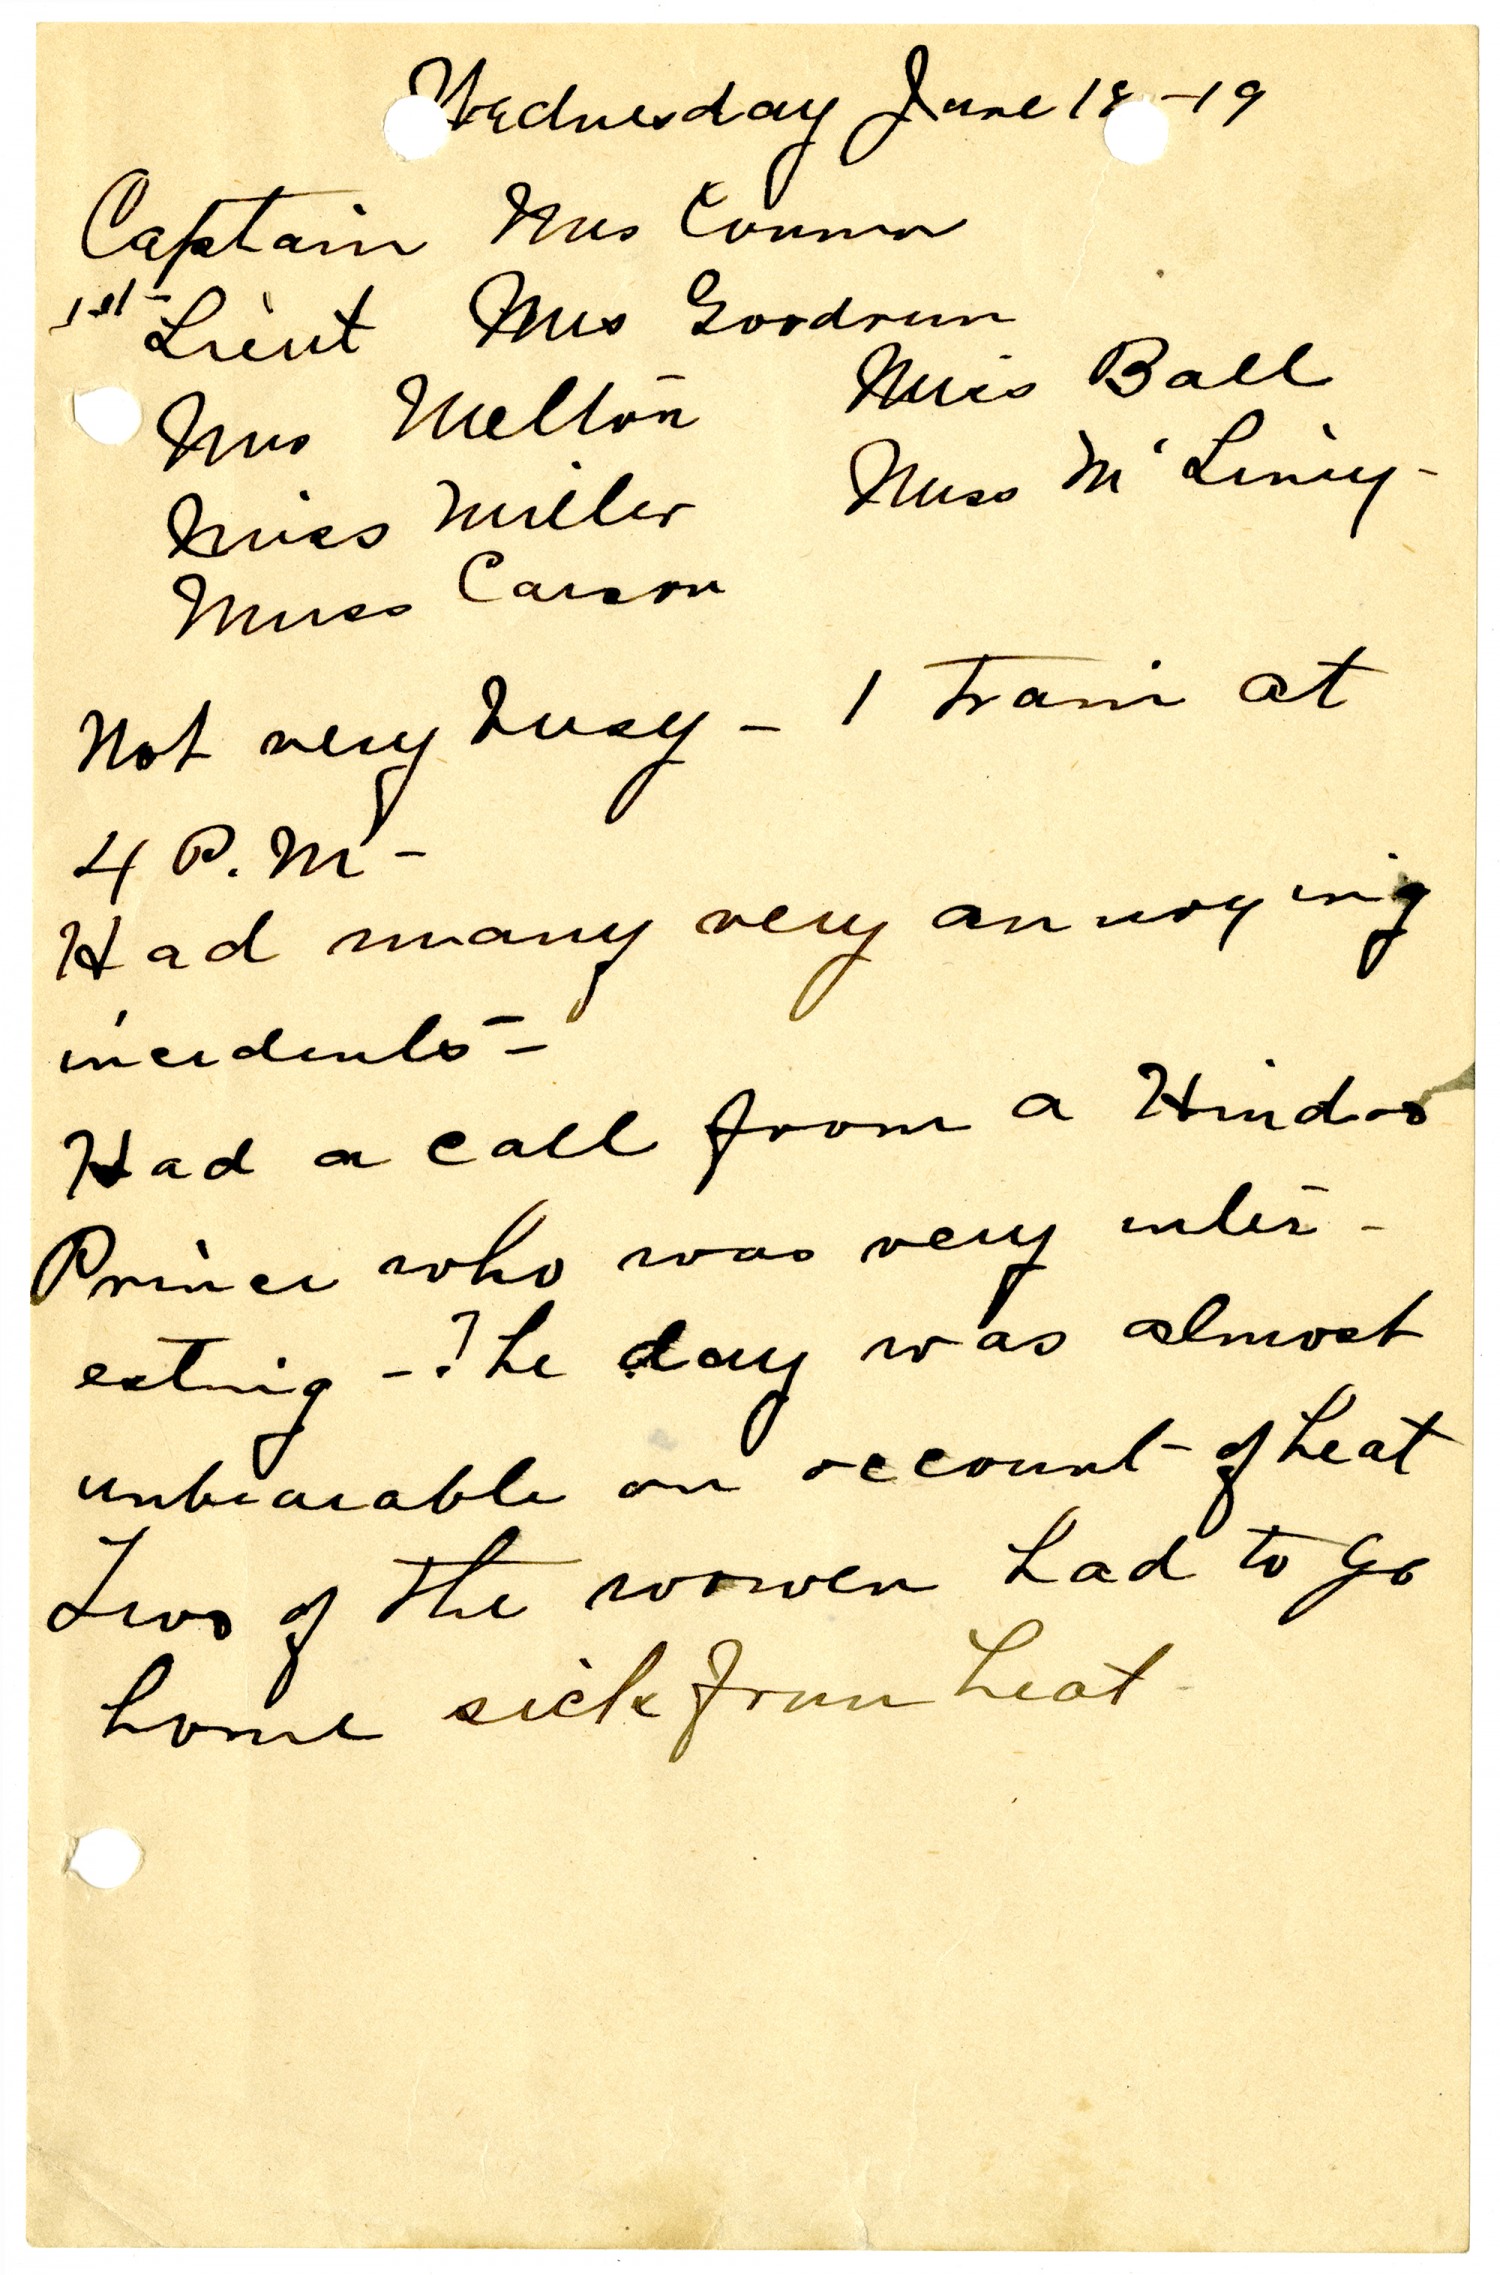 Wednesday June 18 -19
Captain Mrs Connor
1st Lieut Mrs Goodrum
Mrs Melton Miss Ball
Miss Miller Miss Mc Liney -
Miss Carson
Not very busy - 1 train at
4 P.M -
Had many very annoying
incidents -
Had a call from a Hindoo
Prince who was very inter -
esting - The day was almost
unbearable on account of heat
Two of the women had to go
home sick from heat